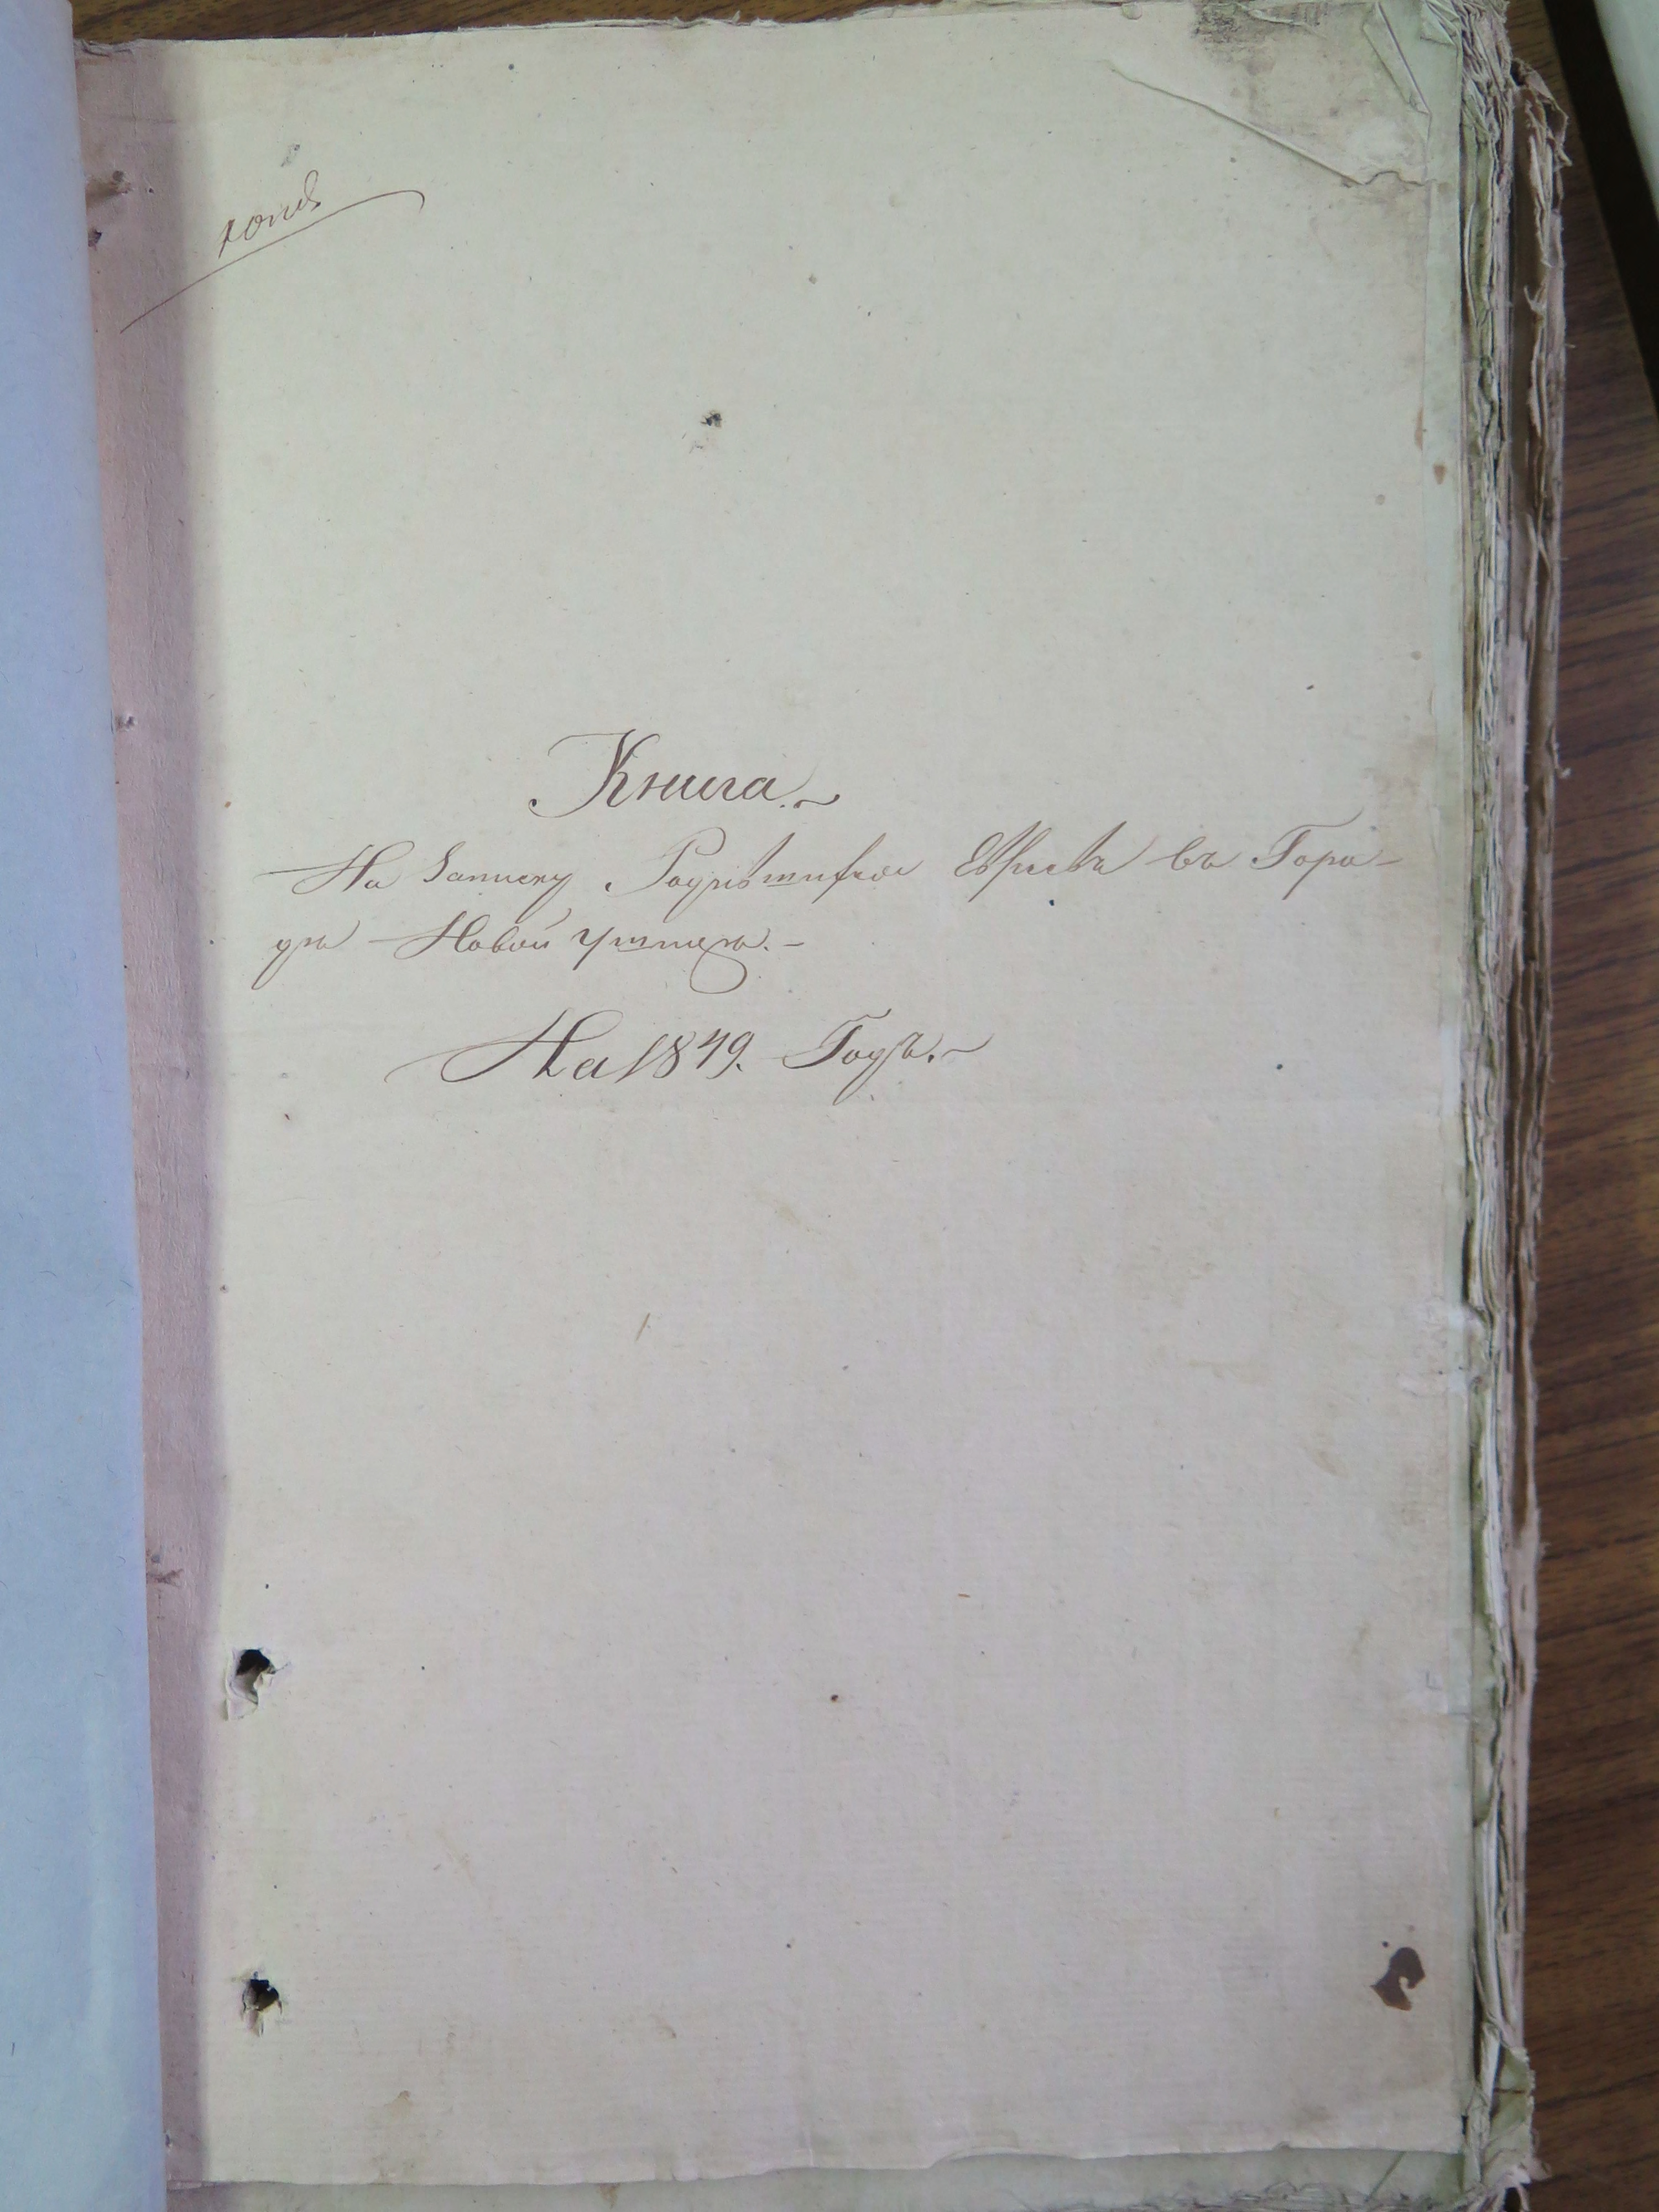 копія
Книга.~
На Записку Родившихся Евреевъ въ Горо-
дѣ Новой Ушицѣ.-
На 1849. Годъ.~